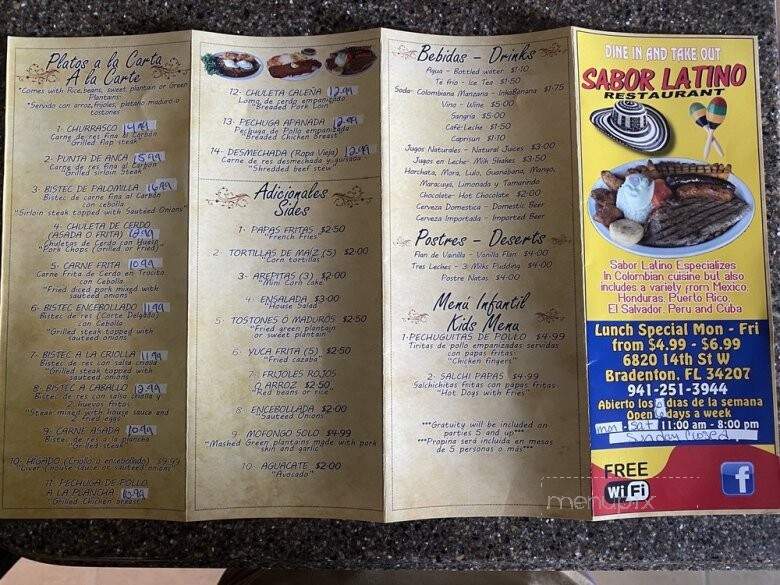 Platos a la Carta
A la Carte
*Comes with Rice, beans, sweet plantain or Green
Plantains*
*Servido con arroz, frijoles, platano maduro o
tostones
1- CHURRASCO 14.99
Carne de res fina al Carbón
"Grilled flap steak"
2- PUNTA DE ANCA 15.99
Carne de res fina al Carbón
"Grilled sirloin Steak"
3- BISTEC DE PALOMILLA 16.99
Bistec de carne fina al Carbón
con cebolla
"Sirloin steak topped with Sautéed Onions"
4- CHULETA DE CERDO
(ASADA O FRITA) 12.99
Chuletas de Cerdo con Hueso
"Pork Chops (Grilled or Fried)"
5- CARNE FRITA 10.99
Carne Frita de Cerdo en Trocito
con Cebolla
"Fried diced pork mixed with
sauteed onions"
6- BISTEC ENCEBOLLADO 11.99
Bistec de res (Corte Delgado)
con Cebolla
"Grilled steak topped with
sauteed onions"
7- BISTEC A LA CRIOLLA 11.99
Bistec de res con salsa criolla
"Grilled steak topped with
sauteed onions"
8- BISTEC A CABALLO 12.99
Bistec de res con salsa criolla y
2 huevos fritos
"Steak mixed with house sauce and
2 fried eggs"
9- CARNE ASADA 10.99
Bistec de res a la plancha
"Grilled steak"
10- HIGADO (Criollo o encebollado) $9.99
"Liver (house sauce or sauteed onions)"
11- PECHUGA DE POLLO
A LA PLANCHA 10.99
"Grilled Chicken breast"
12- CHULETA CALEÑA 12.99
Loma de cerdo empanizado
"Breaded Pork Loin"
13- PECHUGA APANADA 12.99
Pechuga de Pollo empanizada
"Breaded Chicken Breast"
14- DESMECHADA (Ropa Vieja) 12.99
Carne de res desmechada y guisada
"Shredded beef stew"
Adicionales
Sides
1- PAPAS FRITAS $2.50
"French Fries"
2- TORTILLAS DE MAÍZ (5) $2.00
"Corn tortillas"
3- AREPITAS (3) $2.00
"Mini Corn cake"
4- ENSALADA $3.00
"House Salad"
5- TOSTONES Ó MADUROS $2.50
"Fried green plantain
or sweet plantain"
6- YUCA FRITA (5) $2.50
"Fried cazaba"
7- FRIJOLES ROJOS
O ARROZ $2.50
"Red beans or rice"
8- ENCEBOLLADA $2.00
"Sauteed Onions"
9- MOFONGO SOLO $4.99
"Mashed Green plantains made with pork
skin and garlic"
10- AGUACATE $2.00
"Avocado"
Bebidas - Drinks
Agua - Bottled water $1.10
Té frio - Ice Tea $1.50
Soda- Colombiana Manzana - InkaBanana $1.75
Vino - Wine $5.00
Sangria $5.00
Café-Leche $1.50
Caprisun $1.10
Jugos Naturales - Natural Juices $3.00
Jugos en Leche- Milk Shakes $3.50
Horchata, Mora, Lulo, Guanábana, Mango,
Maracuyá, Limonada y Tamarindo
Chocolate- Hot Chocolate $2.00
Cerveza Domestica - Domestic Beer
Cerveza Importada - Imported Beer
Postres - Deserts
Flan de Vainilla - Vanilla Flan $4.00
Tres Leches - 3 Milks Pudding $4.00
Postre Natas $4.00
Menú Infantil
Kids Menu
1-PECHUGUITAS DE POLLO $4.99
Tiritas de pollo empanizadas servidas
con papas fritas
"Chicken fingers"
2- SALCHI PAPAS $4.99
Salchichitas fritas con papas fritas
"Hot Dogs with Fries"
***Gratuity will be included on
parties 5 and up***
***Propina será incluida en mesas
de 5 personas o más***
DINE IN AND TAKE OUT
SABOR LATINO
RESTAURANT
Sabor Latino Especializes
In Colombian cuisine but also
includes a variety from Mexico,
Honduras, Puerto Rico,
El Salvador, Peru and Cuba
Lunch Special Mon - Fri
from $4.99 - $6.99
6820 14th St W
Bradenton, FL 34207
941-251-3944
Abierto los 6 días de la semana
Open 6 days a week
mon - Sat 11:00 am - 8:00 pm
Sunday Closed
FREE
Wi Fi
f
menupix